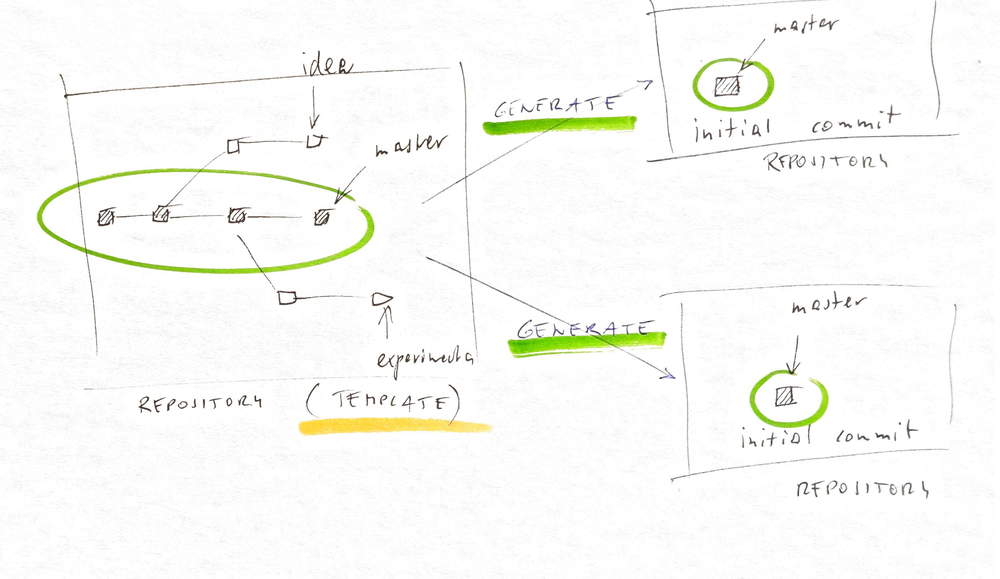 idea
master
experimenta
REPOSITORY (TEMPLATE)
GENERATE
master
initial commit
REPOSITORY
GENERATE
master
initial commit
REPOSITORY